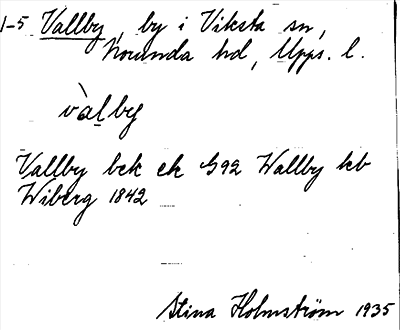 1-5 Vallby, by i Viksta sn,
Norunda hd, Upps. l.
vàlby
Vallby bek ek G92 Wallby kb
Wiberg 1842
Stina Holmström 1935